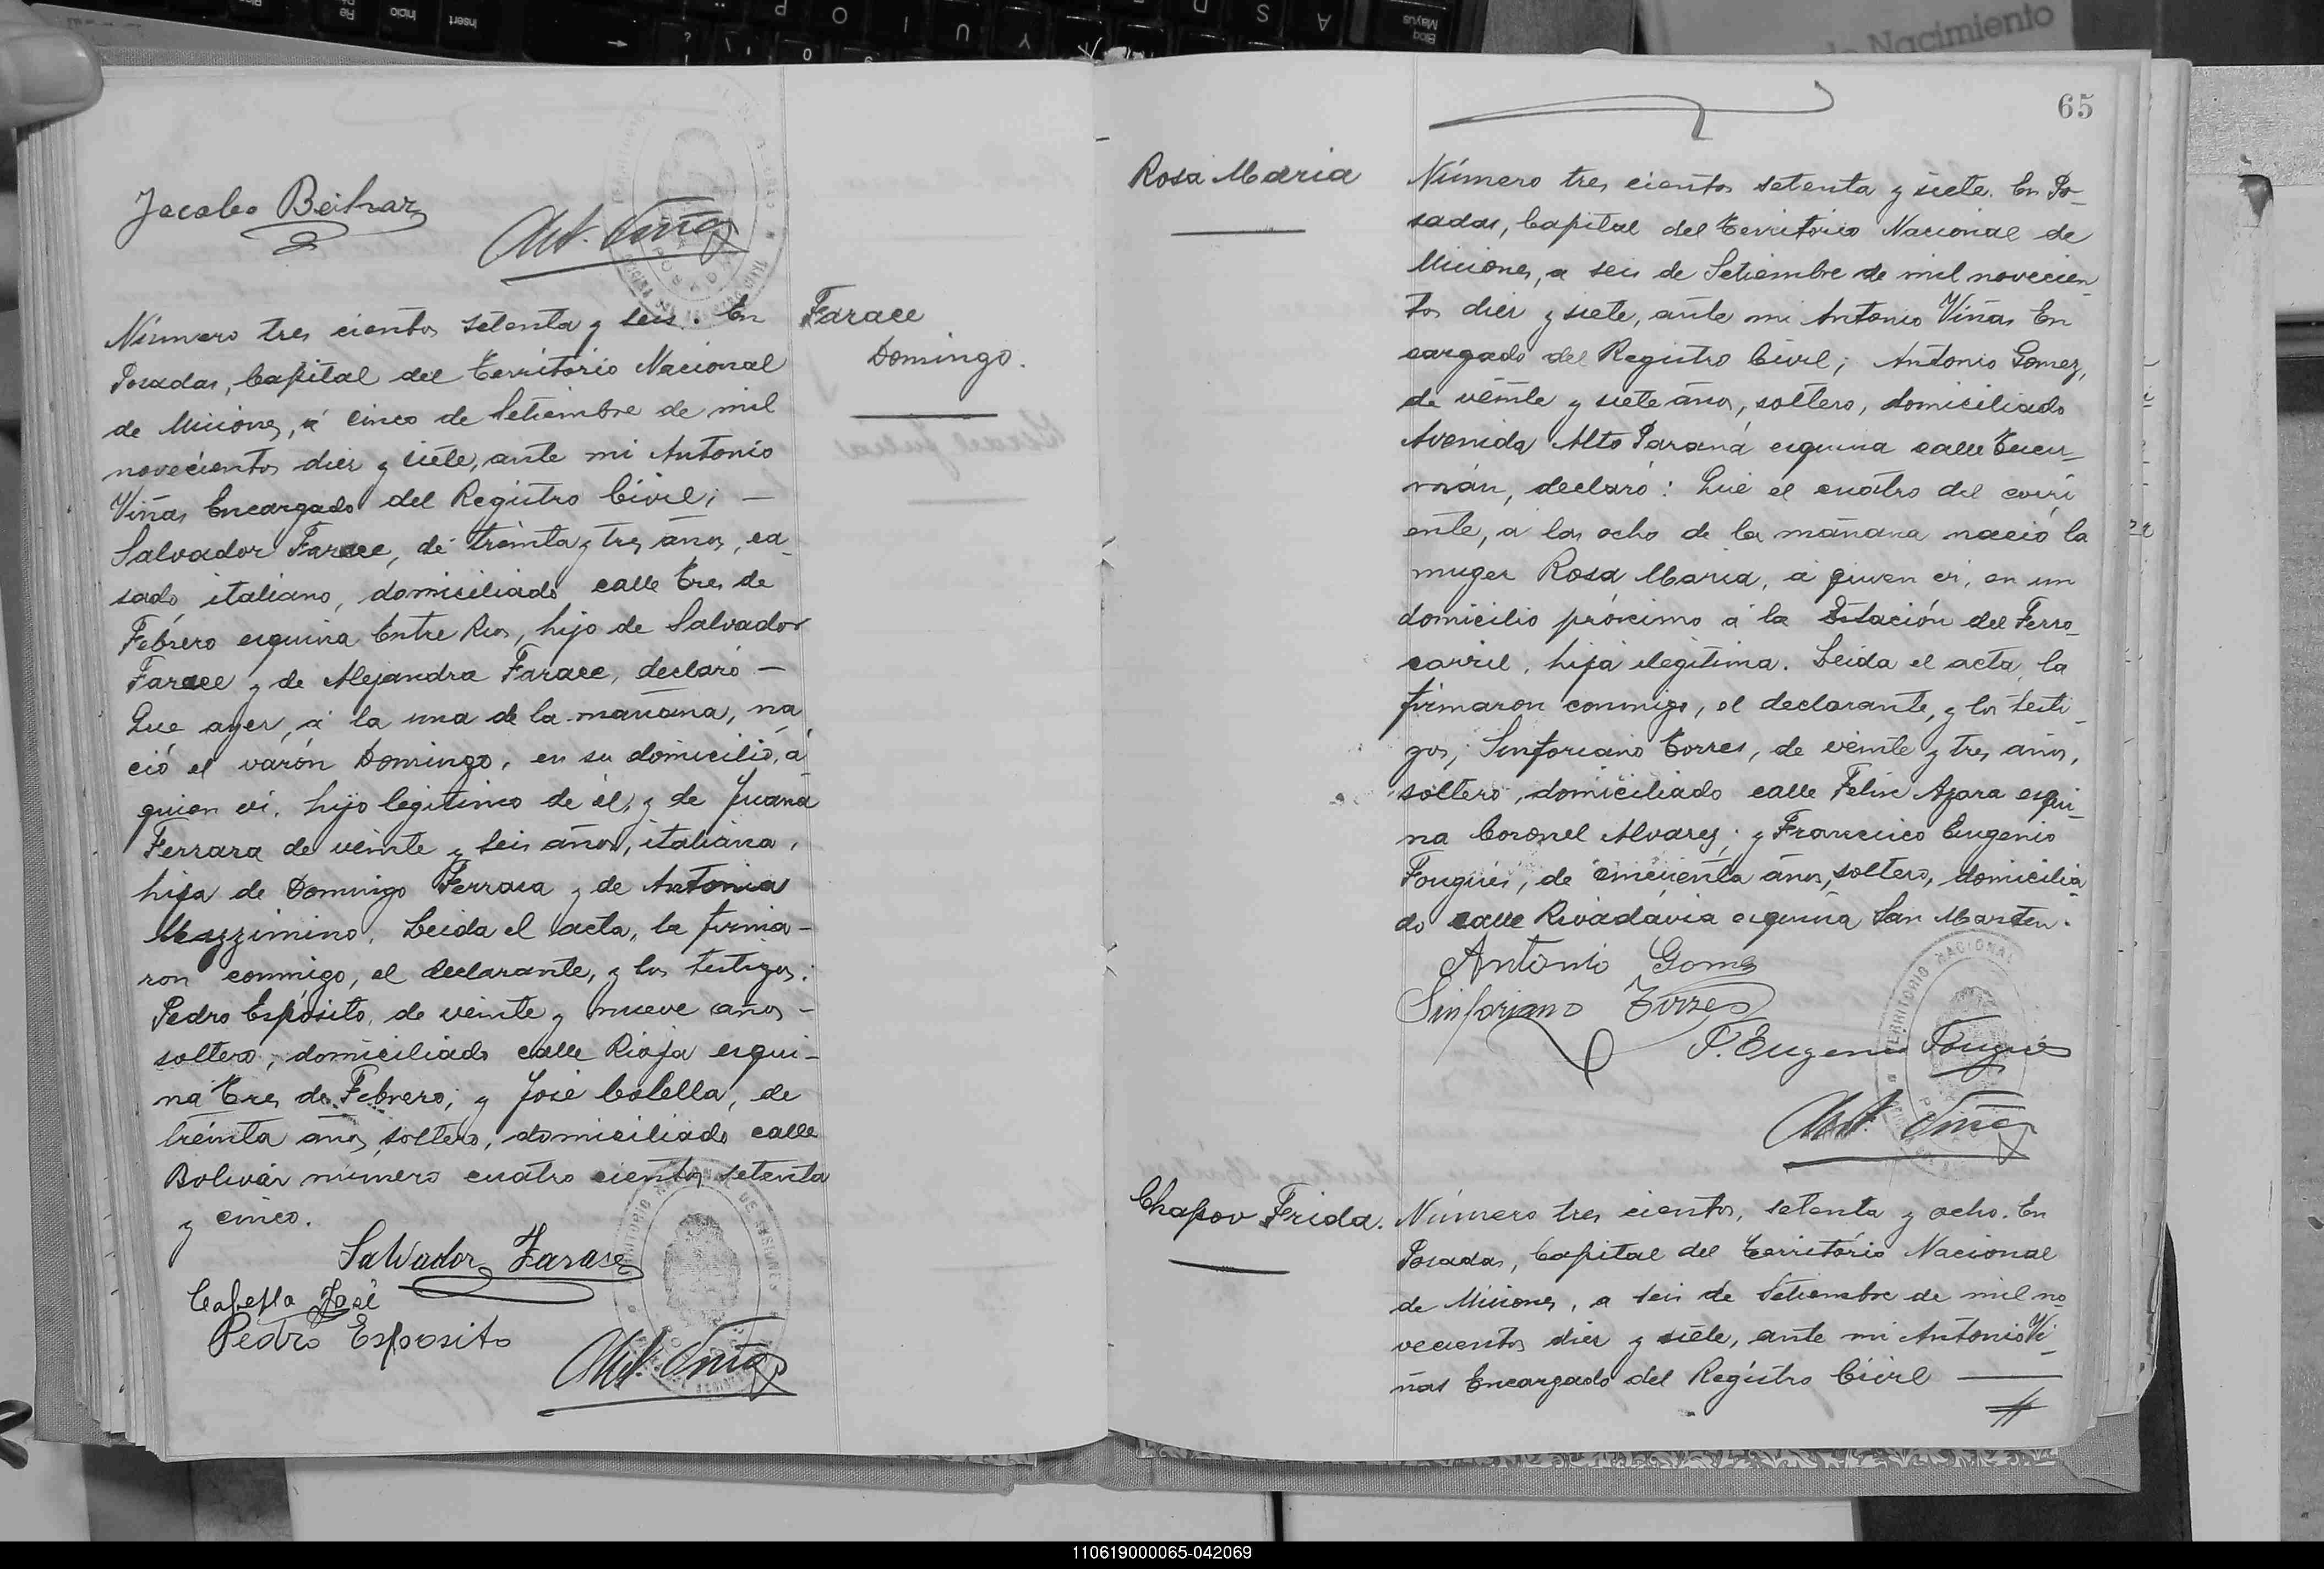 Jacobo Beitnar
Ant. Viñas
Número tres cientos setenta y seis. En
Posadas, Capital del Territorio Nacional
de Misiones, á cinco de Setiembre de mil
novecientos diez y siete, ante mi Antonio
Viñas Encargado del Registro Civil; —
Salvador Farace, de treinta y tres años, ca-
sado, italiano, domiciliado calle Tres de
Febrero esquina Entre Rios, hijo de Salvador
Farace y de Alejandra Farace, declaró —
Que ayer, á la una de la mañana, na
ció el varón Domingo, en su domicilio, á
quien vi, hijo legitimo de él, y de Juana
Ferrara de veinte y seis años, italiana,
hija de Domingo Ferrara y de Antonia
Mazzimino. Leida el acta, la firma-
ron conmigo, el declarante, y los testigos:
Pedro Espósito, de veinte y nueve años -
soltero, domiciliado calle Rioja esqui-
na Tres de Febrero; y José Colella, de
treinta años, soltero, domiciliado calle
Bolivar número cuatro cientos setenta
y cinco.
Salvador Farace
José
Pedro Esposito
Ant. Viñas
Farace
Domingo.
65
Rosa Maria
Número tres cientos setenta y siete. En Po-
sadas, Capital del Territorio Nacional de
Misiones, a seis de Setiembre de mil novecien-
tos diez y siete, ante mi Antonio Viñas En
cargado del Registro Civil; Antonio Gomez,
de veinte y siete años, soltero, domiciliado
Avenida Alto Paraná esquina calle Tucu-
mán, declaró: Que el cuatro del corri
ente, a las ocho de la mañana nació la
muger Rosa Maria, á quien vi, en un
domicilio próximo á la Estación del Ferro-
carril, hija ilegitima. Leida el acta, la
firmaron conmigo, el declarante, y los testi-
gos; Sinforiano Torres, de veinte y tres años,
soltero, domiciliado calle Felix Azara esqui-
na Coronel Alvarez; y Francisco Eugenio
Fougués, de cincuenta años, soltero, domicilia-
do calle Rivadavia esquina San Martin.
Antonio Gomez
Sinforiano Torres
F. Eugenio Fougués
Ant. Viñas
Chapov Frida.
Número tres cientos, setenta y ocho. En
Posadas, Capital del Territorio Nacional
de Misiones, a seis de Setiembre de mil no-
vecientos diez y siete, ante mi Antonio Vi-
ñas Encargado del Registro Civil —
110619000065-042069